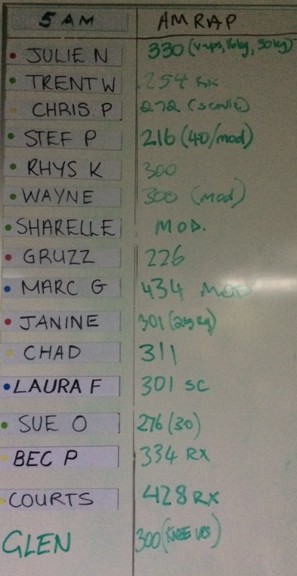 5 AM AMRAP
JULIE N 330 (16kg, 30kg)
TRENT W 254 RX
CHRIS P 272 (scale)
STEF P 216 (40/mod)
RHYS K 300
WAYNE 300 (mod)
SHARELLE MOD.
GRUZZ 226
MARC G 434 MOD
JANINE 301
CHAD 311
LAURA F 301 SC
SUE O 276 (30)
BEC P 334 RX
COURTS 428 RX
GLEN 300 (KNEE UPS)